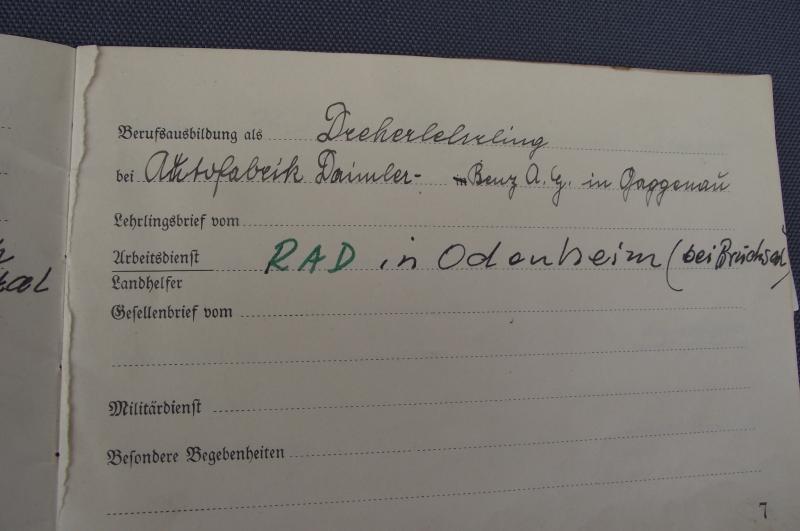 Berufsausbildung als Dreherlehrling
bei Autofabrik Daimler-Benz A. G. in Gaggenau
Lehrlingsbrief vom
Arbeitsdienst RAD in Odenheim (bei Bruchsal)
Landhelfer
Gesellenbrief vom
Militärdienst
Besondere Begebenheiten
7